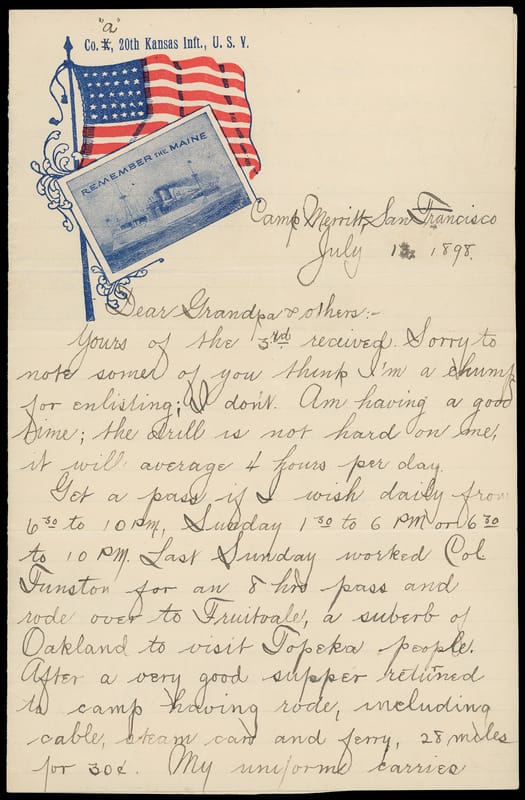 "a"
Co. K, 20th Kansas Inft., U. S. V.
REMEMBER THE MAINE
Camp Merritt, San Francisco
July 1898.
Dear Grandpa & others:-
Yours of the 3rd received. Sorry to
note some of you think I'm a chump
for enlisting; I don't. Am having a good
time; the drill is not hard on me,
it will average 4 hours per day.
Get a pass if I wish daily from
6 30 to 10 PM, Sunday 1 30 to 6 PM or 6 30
to 10 PM. Last Sunday worked Col
Funston for an 8 hrs pass and
rode over to Fruitvale, a suberb of
Oakland to visit Topeka people.
After a very good supper returned
to camp having rode, including
cable, steam cars and ferry, 28 miles
for 30¢. My uniform carries